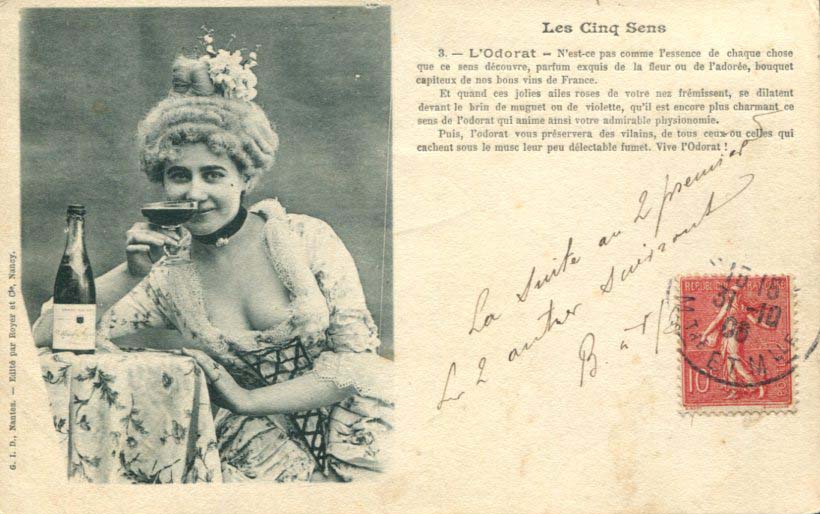 Les Cinq Sens
3. — L'Odorat — N'est-ce pas comme l'essence de chaque chose
que ce sens découvre, parfum exquis de la fleur ou de l'adorée, bouquet
capiteux de nos bons vins de France.
Et quand ces jolies ailes roses de votre nez frémissent, se dilatent
devant le brin de muguet ou de violette, qu'il est encore plus charmant ce
sens de l'odorat qui anime ainsi votre admirable physionomie.
Puis, l'odorat vous préservera des vilains, de tous ceux ou celles qui
cachent sous le musc leur peu délectable fumet. Vive l'Odorat !
La suite au 2 premier
Les 2 autres suivront
B. à T
REPUBLIQUE FRANÇAISE
10
31 -10
05
ET M
G. I. D., Nantes. — Edité par Royer et Cie, Nancy.